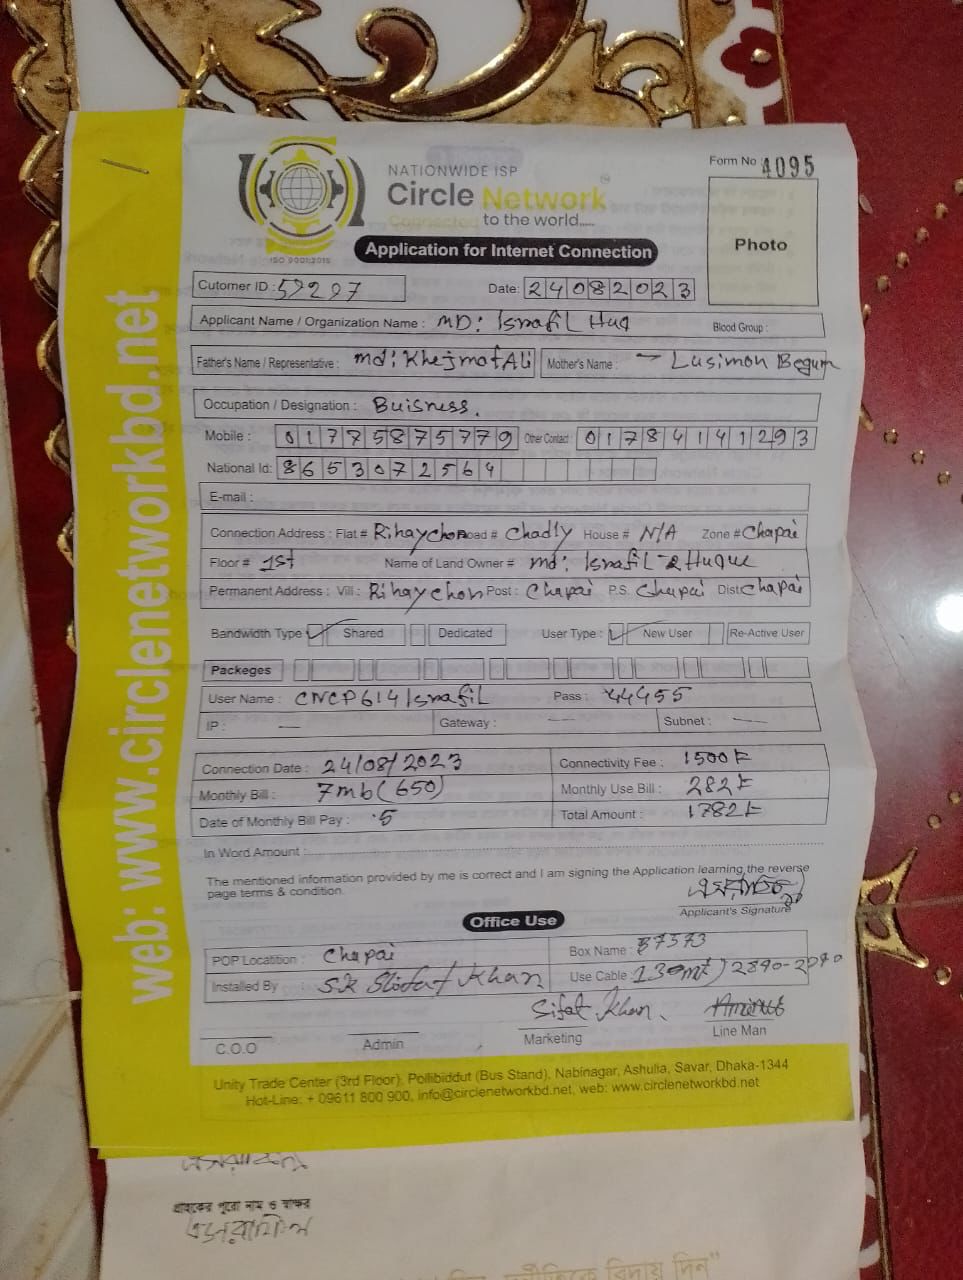 NATIONWIDE ISP
Circle Network
Connected to the world.....
ISO 9001:2015
Form No : 4095
Photo
Application for Internet Connection
Cutomer ID : 59297
Date: 24082023
Applicant Name / Organization Name : MD: Israfil Huq Blood Group :
Father's Name / Representative : md: Khejmat Ali Mother's Name : Lusimon Begum
Occupation / Designation : Buisness.
Mobile : 01775875779 Other Contact : 01784141293
National Id: 8653072564
E-mail :
Connection Address : Flat # Rihaychon Road # Chadly House # N/A Zone # Chapai
Floor # 1st Name of Land Owner # md: Israfil Huque
Permanent Address : Vill : Rihaychon Post : Chapai P.S. Chapai Dist: Chapai
Bandwidth Type Shared Dedicated User Type : New User Re-Active User
Packeges
User Name : CNCP614Israfil Pass : 44455
IP : — Gateway : — Subnet : —
Connection Date : 24/08/2023 Connectivity Fee : 1500
Monthly Bill : 7mb (650) Monthly Use Bill : 282
Date of Monthly Bill Pay : 5 Total Amount : 1782
In Word Amount :
The mentioned information provided by me is correct and I am signing the Application learning the reverse
page terms & condition.
Applicant's Signature
Office Use
POP Locatition : Chapai Box Name : B7573
Installed By : S.K Sifat Khan Use Cable : 130mt
Sifat Khan.
C.O.O Admin Marketing Line Man
Unity Trade Center (3rd Floor), Pollibiddut (Bus Stand), Nabinagar, Ashulia, Savar, Dhaka-1344
Hot-Line: + 09611 800 900, info@circlenetworkbd.net, web: www.circlenetworkbd.net
web: www.circlenetworkbd.net
গ্রাহকের পুরো নাম ও স্বাক্ষর